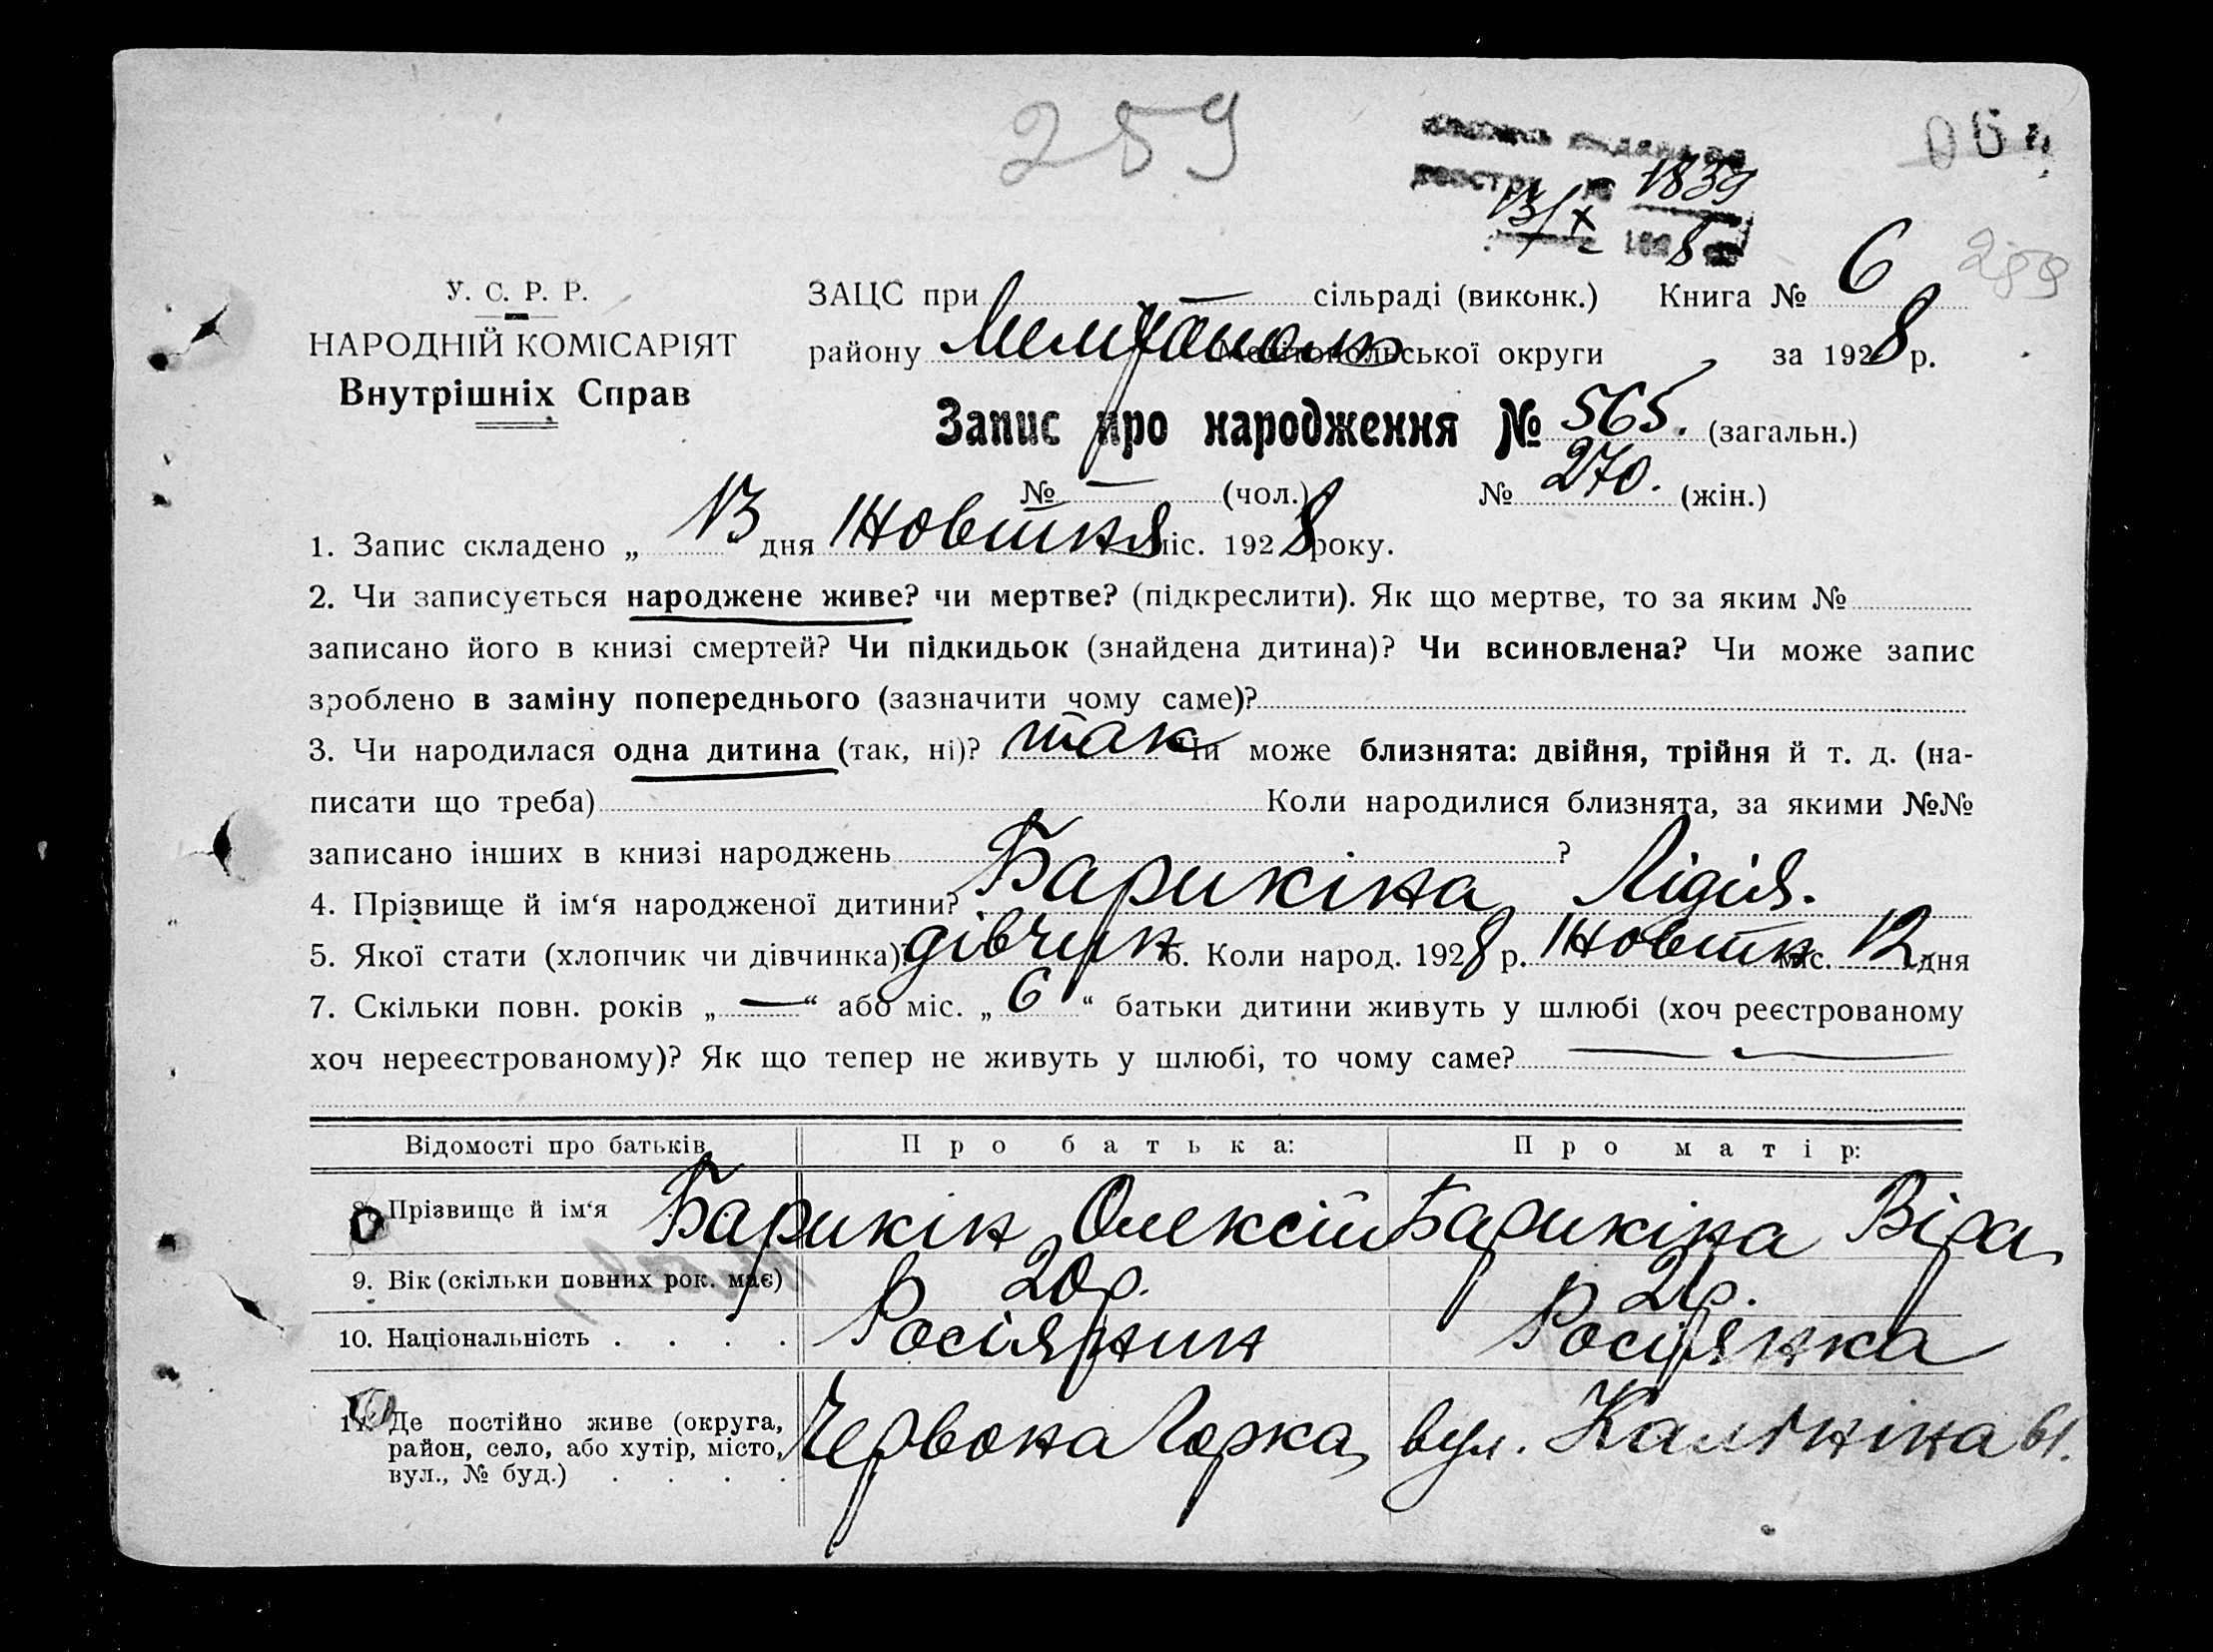 259
видана
реєстр № 1839
13/X 192 8
06
У. С. Р. Р.
ЗАЦС при — сільраді (виконк.) Книга № 6
259
НАРОДНІЙ КОМІСАРІЯТ
району Мелітополь Мелітопольської округи за 1928 р.
Внутрішніх Справ
Запис про народження № 565. (загальн.)
№ — (чол.) № 270. (жін.)
1. Запис складено „ 13 " дня Жовтня міс. 1928 року.
2. Чи записується народжене живе? чи мертве? (підкреслити). Як що мертве, то за яким №
записано його в книзі смертей? Чи підкидьок (знайдена дитина)? Чи всиновлена? Чи може запис
зроблено в заміну попереднього (зазначити чому саме)?
3. Чи народилася одна дитина (так, ні)? так Чи може близнята: двійня, трійня й т. д. (на-
писати що треба) Коли народилися близнята, за якими №№
записано інших в книзі народжень ?
4. Прізвище й ім‘я народженої дитини? Барикіна Лідія.
5. Якої стати (хлопчик чи дівчинка)? дівчин 6. Коли народ. 1928 р. Жовтня міс. 12 дня
7. Скільки повн. років „ — “ або міс. „ 6 “ батьки дитини живуть у шлюбі (хоч реєстрованому
хоч нереєстрованому)? Як що тепер не живуть у шлюбі, то чому саме? — —
Відомості про батьків Про батька: Про матір:
8. Прізвище й ім‘я Барикін Олексій Барикіна Віра
9. Вік (скільки повних рок. має) 20 р. 21 р.
10. Національність . . . . Росіянин Росіянка
11. Де постійно живе (округа,
район, село, або хутір, місто, Червона Горка, вул. Калініна 61.
вул., № буд.) . . . .